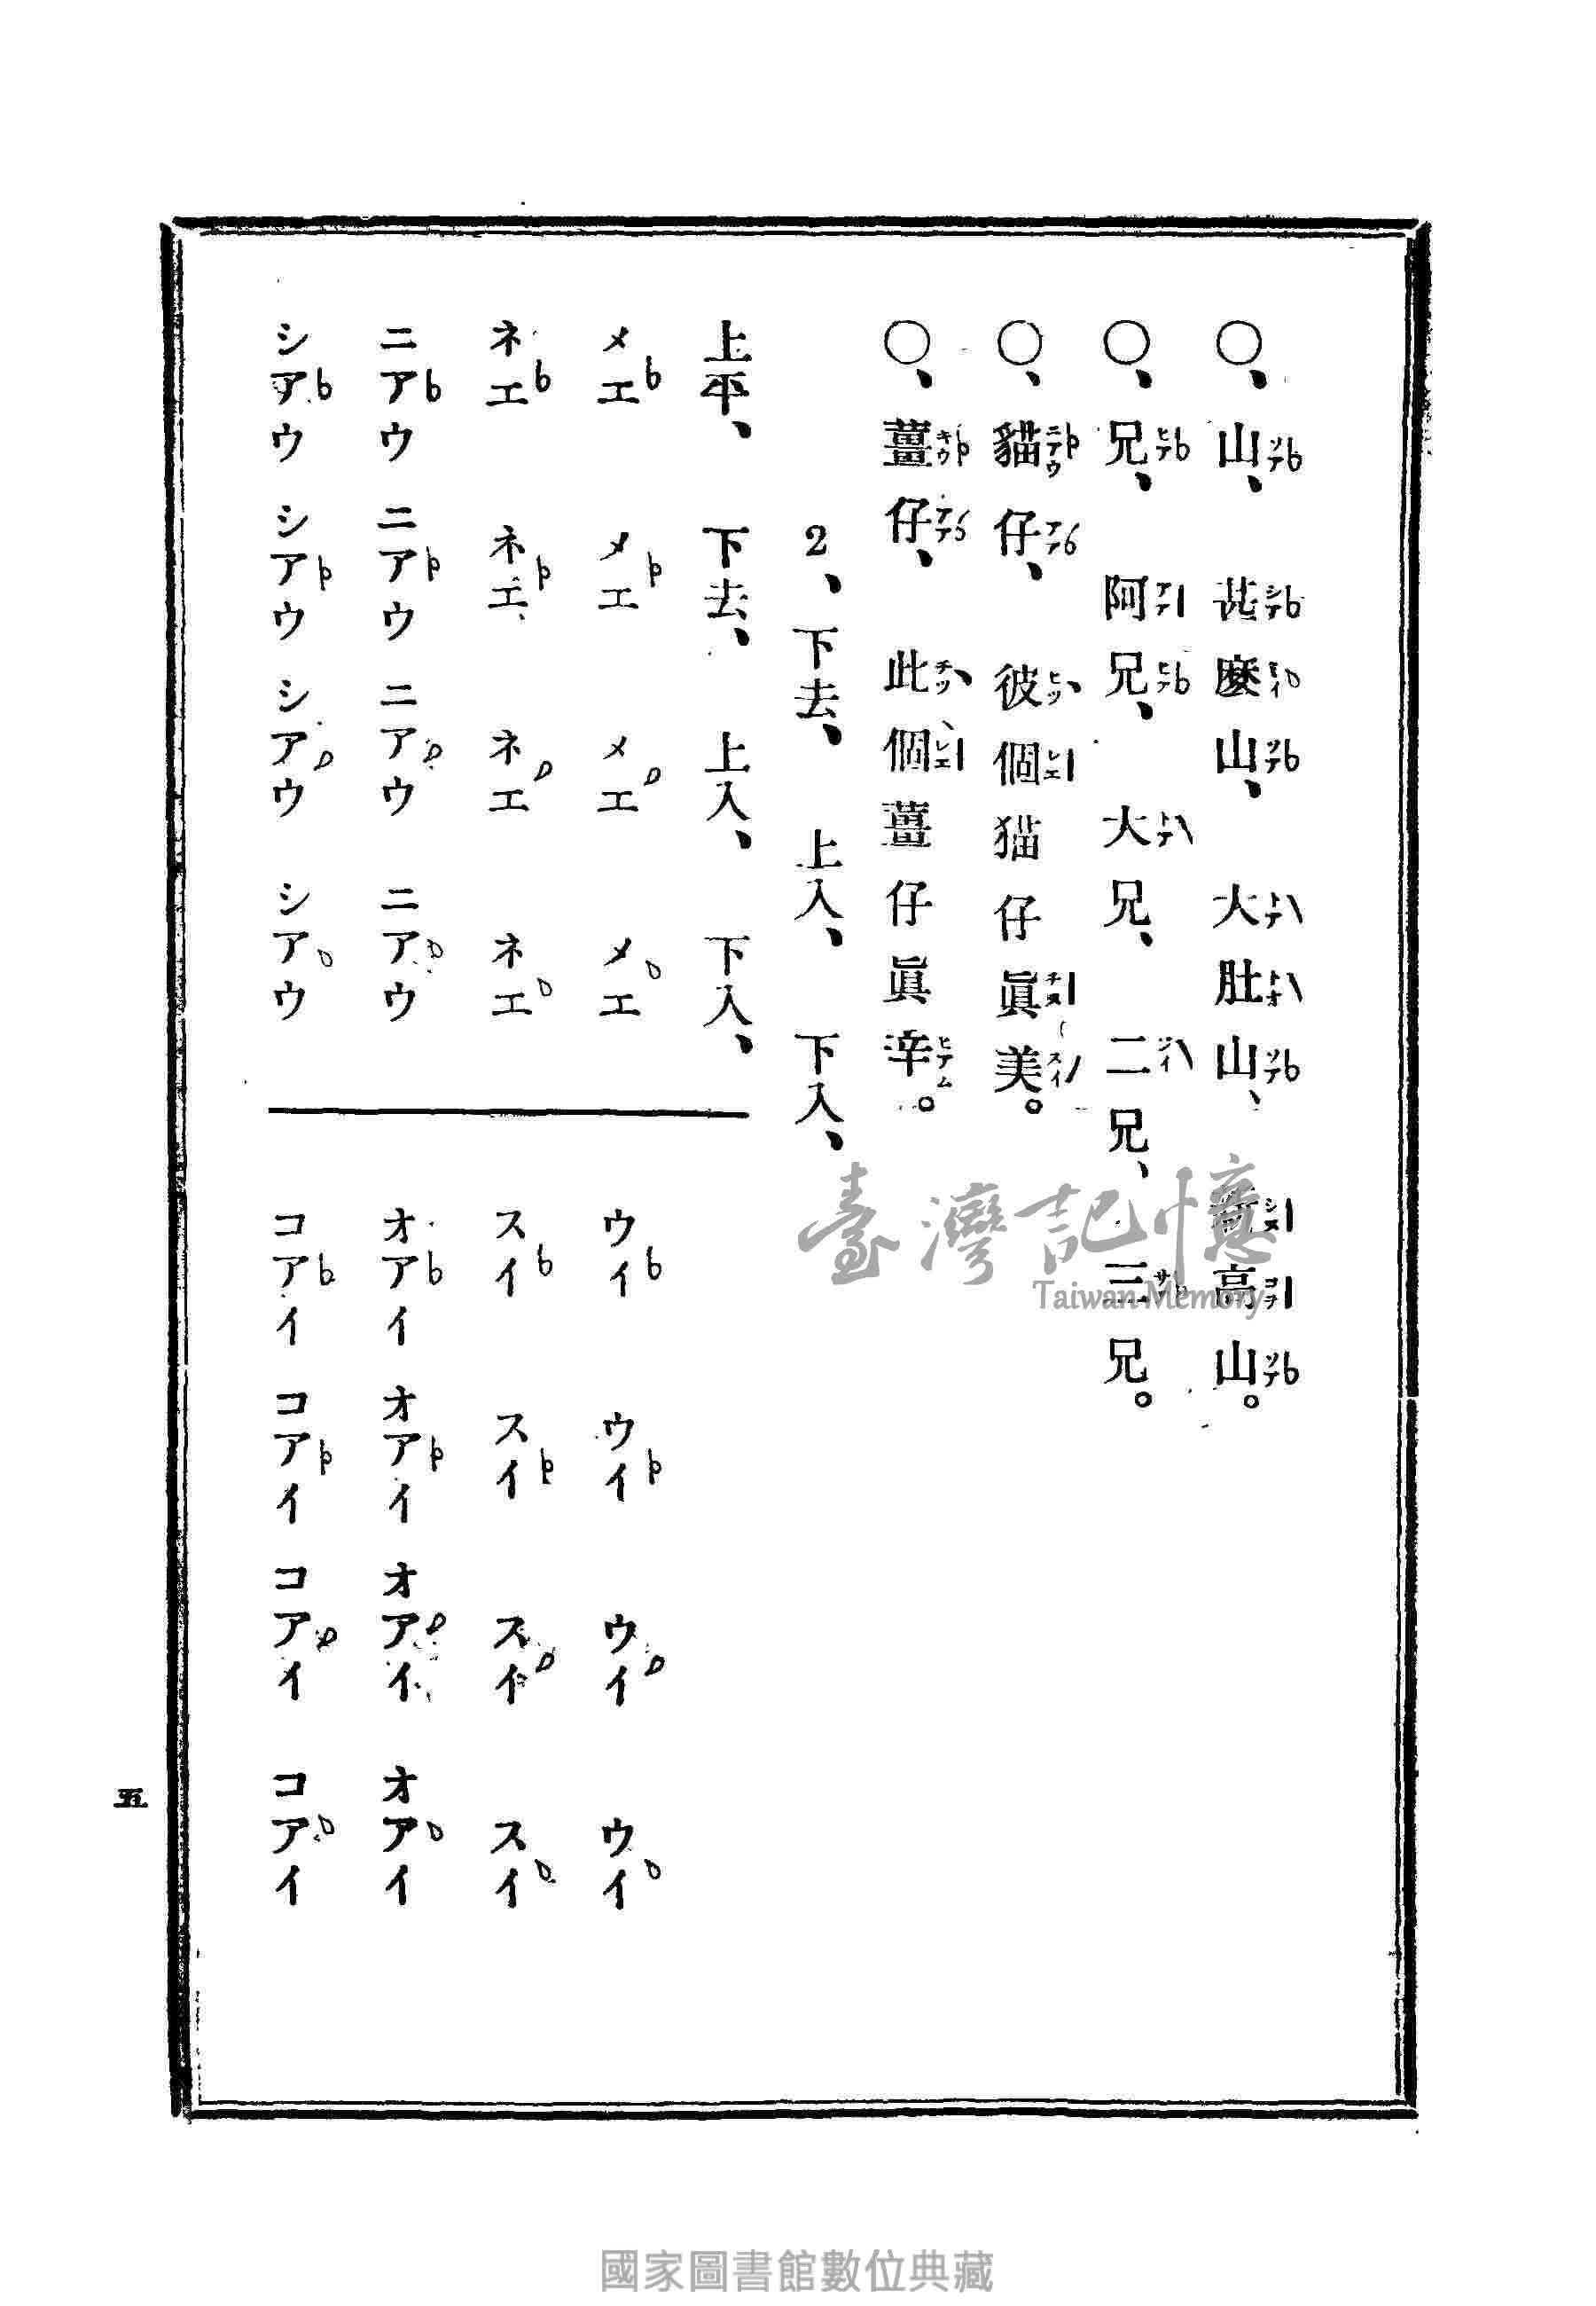 〇、山、甚麼山、大肚山、新高山。
〇、兄、阿兄、大兄、二兄、三兄。
〇、貓仔、彼個猫仔眞美。
〇、薑仔、此個薑仔眞辛。
2、下去、上入、下入、
上平、下去、上入、下入、
メエ メエ メエ メエ
ネエ ネエ ネエ ネエ
ニアウ ニアウ ニアウ ニアウ
シアウ シアウ シアウ シアウ
ウイ ウイ ウイ ウイ
スイ スイ スイ スイ
オアイ オアイ オアイ オアイ
コアイ コアイ コアイ コアイ
五
臺灣記憶
Taiwan Memory
國家圖書館數位典藏